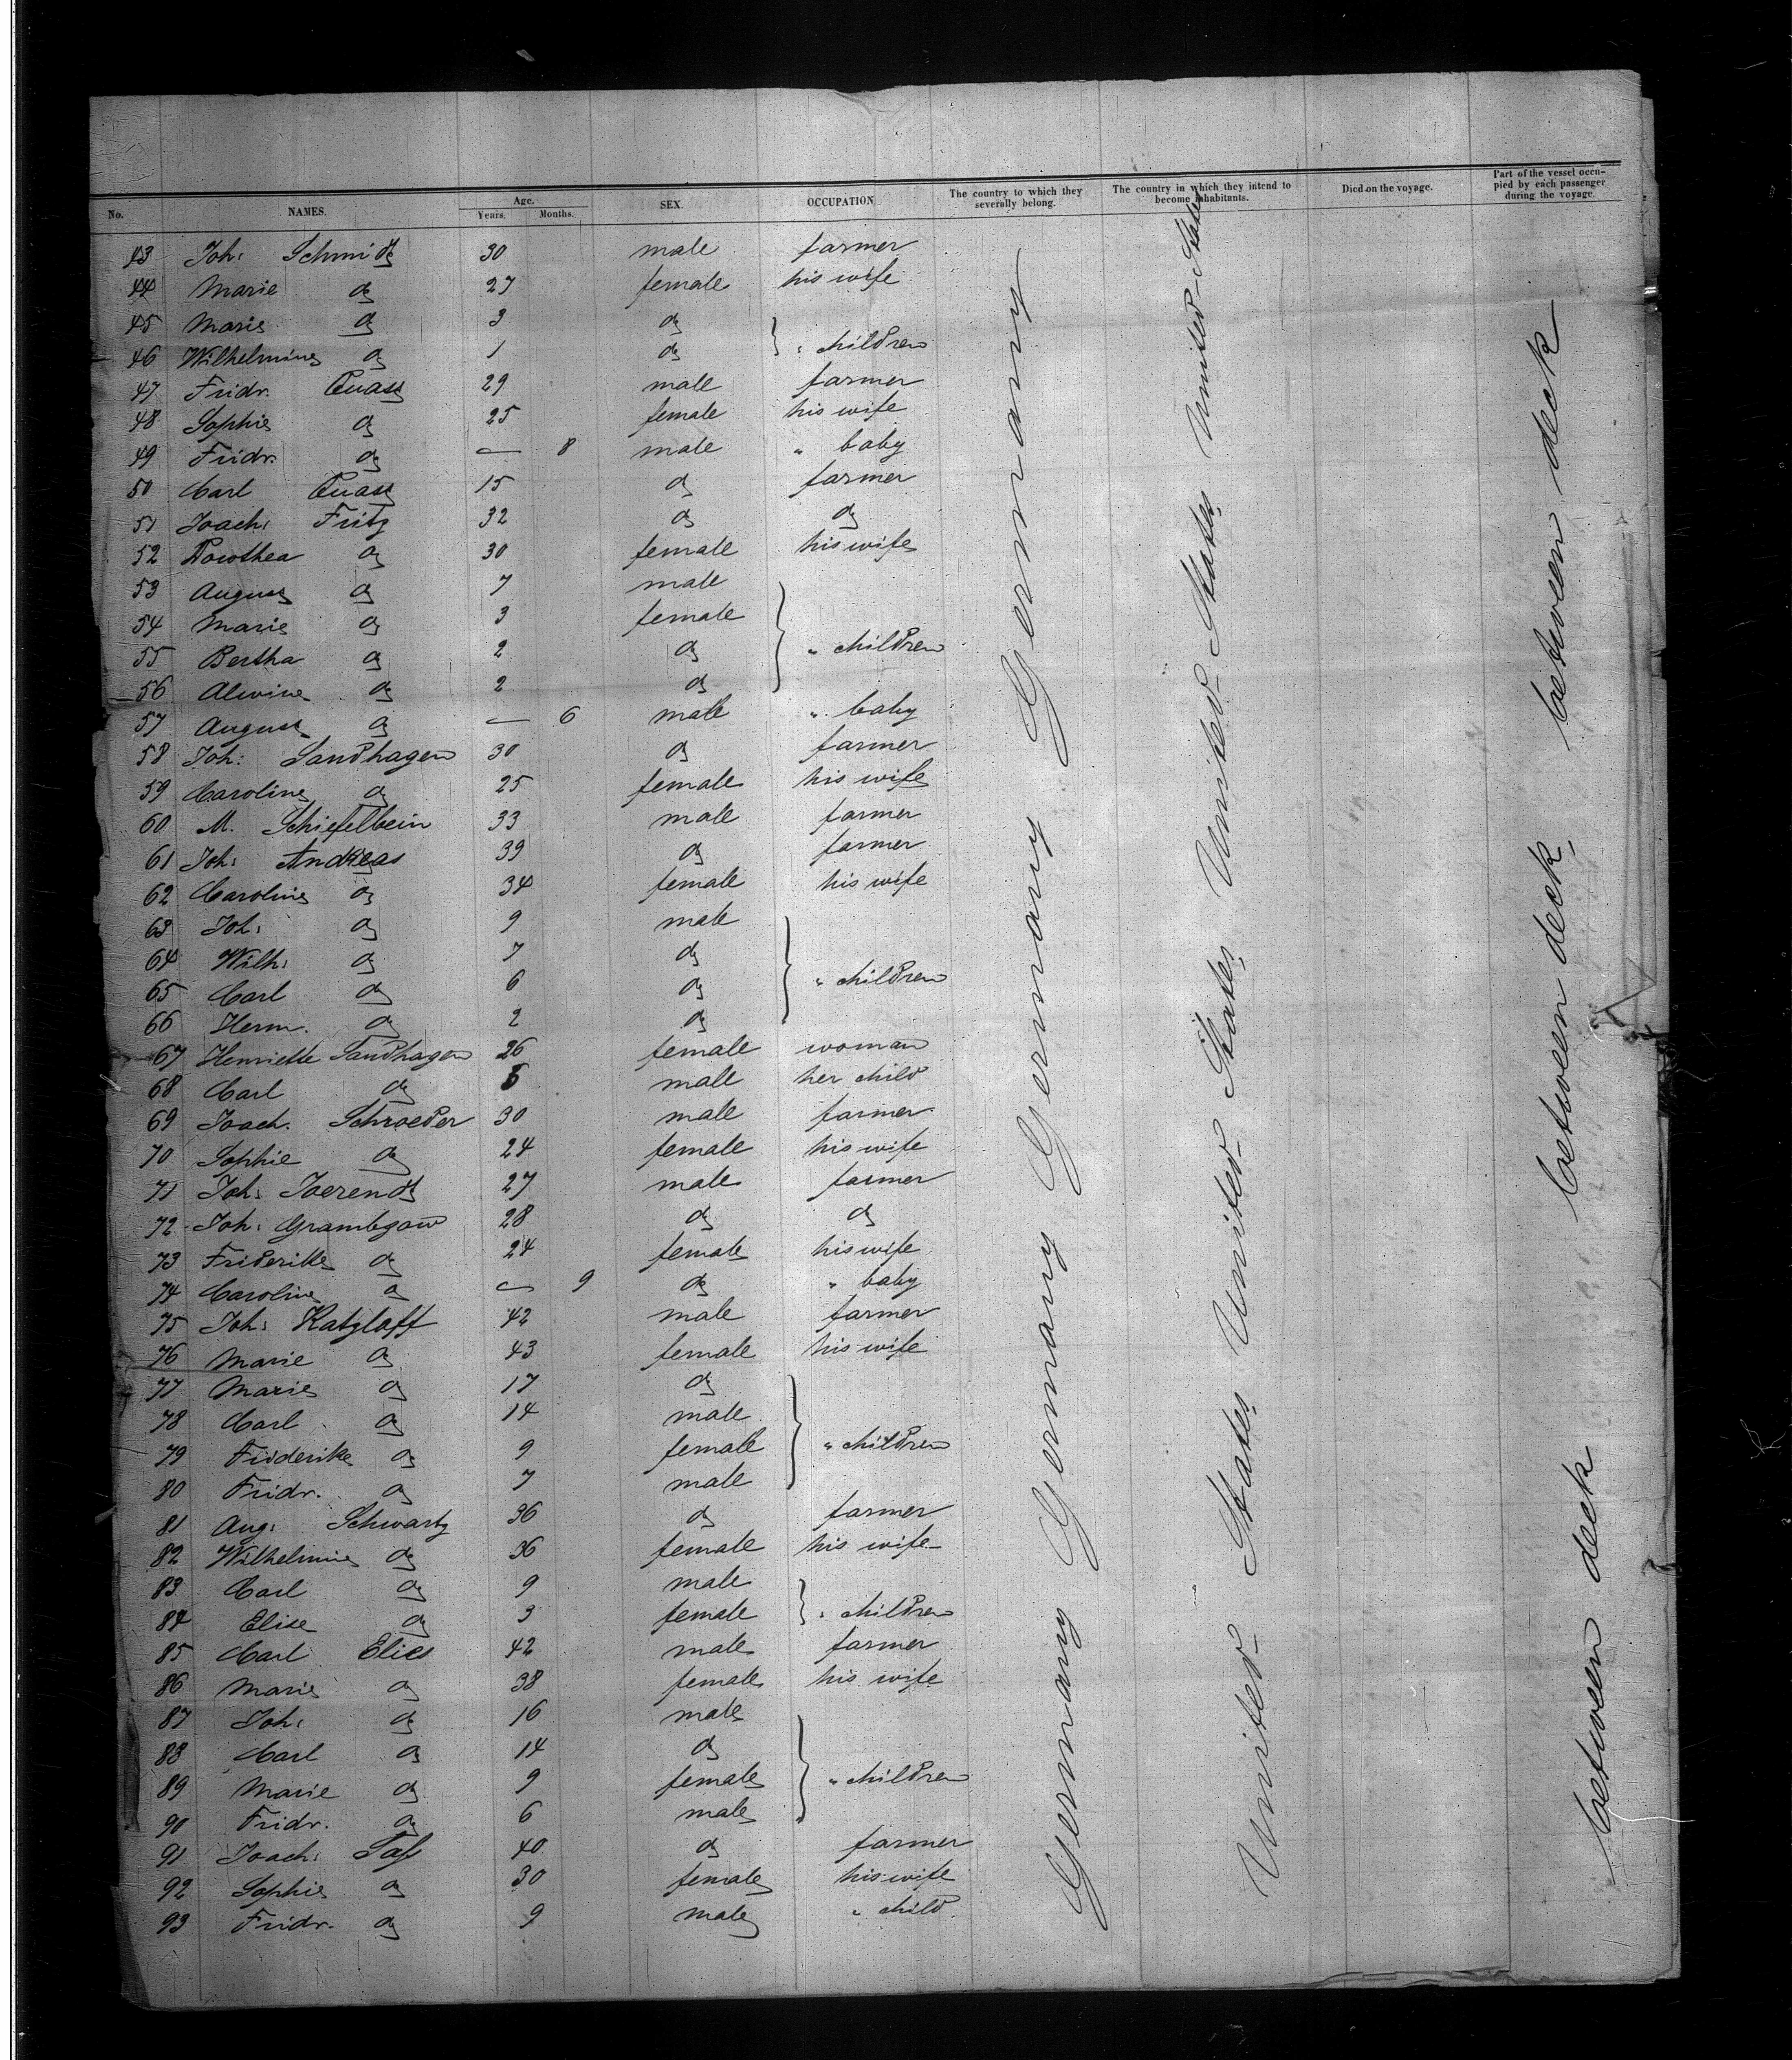 No. NAMES. Age. Years. Months. SEX. OCCUPATION. The country to which they severally belong. The country in which they intend to become inhabitants. Died on the voyage. Part of the vessel occupied by each passenger during the voyage.
43 Joh: Schmidt 30 male farmer
44 Marie do 27 female his wife
45 Marie do 3 do
46 Wilhelmine do 1 do " children
47 Fridr. Quast 29 male farmer
48 Sophie do 25 female his wife
49 Fridr. do — 8 male " baby
50 Carl Quast 15 do farmer
51 Joach: Fritz 32 do do
52 Dorothea do 30 female his wife
53 August do 7 male
54 Marie do 3 female
55 Bertha do 2 do " children
56 Alwine do 2 do
57 August do — 6 male " baby
58 Joh: Sandhagen 30 do farmer
59 Caroline do 25 female his wife
60 M. Schiefelbein 33 male farmer
61 Joh: Andreas 39 do farmer
62 Caroline do 34 female his wife
63 Joh: do 9 male
64 Wilh: do 7 do
65 Carl do 6 do " children
66 Herm. do 2 do
67 Henriette Sandhagen 26 female woman
68 Carl do 5 male her child
69 Joach. Schroeder 30 male farmer
70 Sophie do 24 female his wife
71 Joh: 27 male farmer
72 Joh: 28 do do
73 Friderike do 24 female his wife
74 Caroline do — 9 do " baby
75 Joh: Ratzlaff 42 male farmer
76 Marie do 43 female his wife
77 Marie do 17 do
78 Carl do 14 male
79 Friderike do 9 female " children
80 Fridr. do 7 male
81 Aug: Schwartz 36 do farmer
82 Wilhelmine do 36 female his wife
83 Carl do 9 male
84 Elise do 3 female " children
85 Carl Elies 42 male farmer
86 Marie do 38 female his wife
87 Joh: do 16 male
88 Carl do 14 do
89 Marie do 9 female " children
90 Fridr. do 6 male
91 Joach: 40 do farmer
92 Sophie do 30 female his wife
93 Fridr. do 9 male " child
Germany Germany Germany Germany Germany
United States United States United States United States United States
between deck between deck between deck